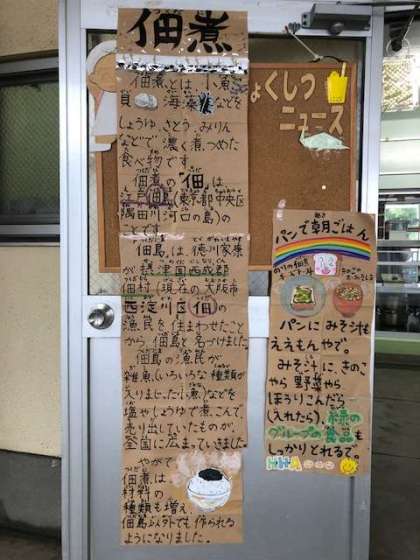 佃煮
佃煮とは、小魚
貝 海藻などを
しょうゆ、さとう、みりん
などで、濃く煮つめた
食べ物です。
佃煮の“佃”は、
江戸佃島(東京都中央区
隅田川河口の島)の
ことです。
佃島は、徳川家康
が摂津国西成郡
佃村(現在の大阪市
西淀川区佃)の
漁民を住まわせたこと
から佃島と名づけました。
佃島の漁民が
雑魚(いろいろな種類が
入りまじった小魚)などを
塩やしょうゆで煮こんで
売り出していたものが、
全国に広まっていきました。
やがて
佃煮は
材料の
種類も増え
佃島以外でも作られる
ようになりました。
ょくしつ
ニュース
パンで朝ごはん
のりの佃煮
チーズトースト
パンにみそ汁も
ええもんやで。
みそ汁に、きのこ
やら野菜やら
ほうりこんだら
(入れたら)、緑の
グループの食品も
しっかりとれるで。